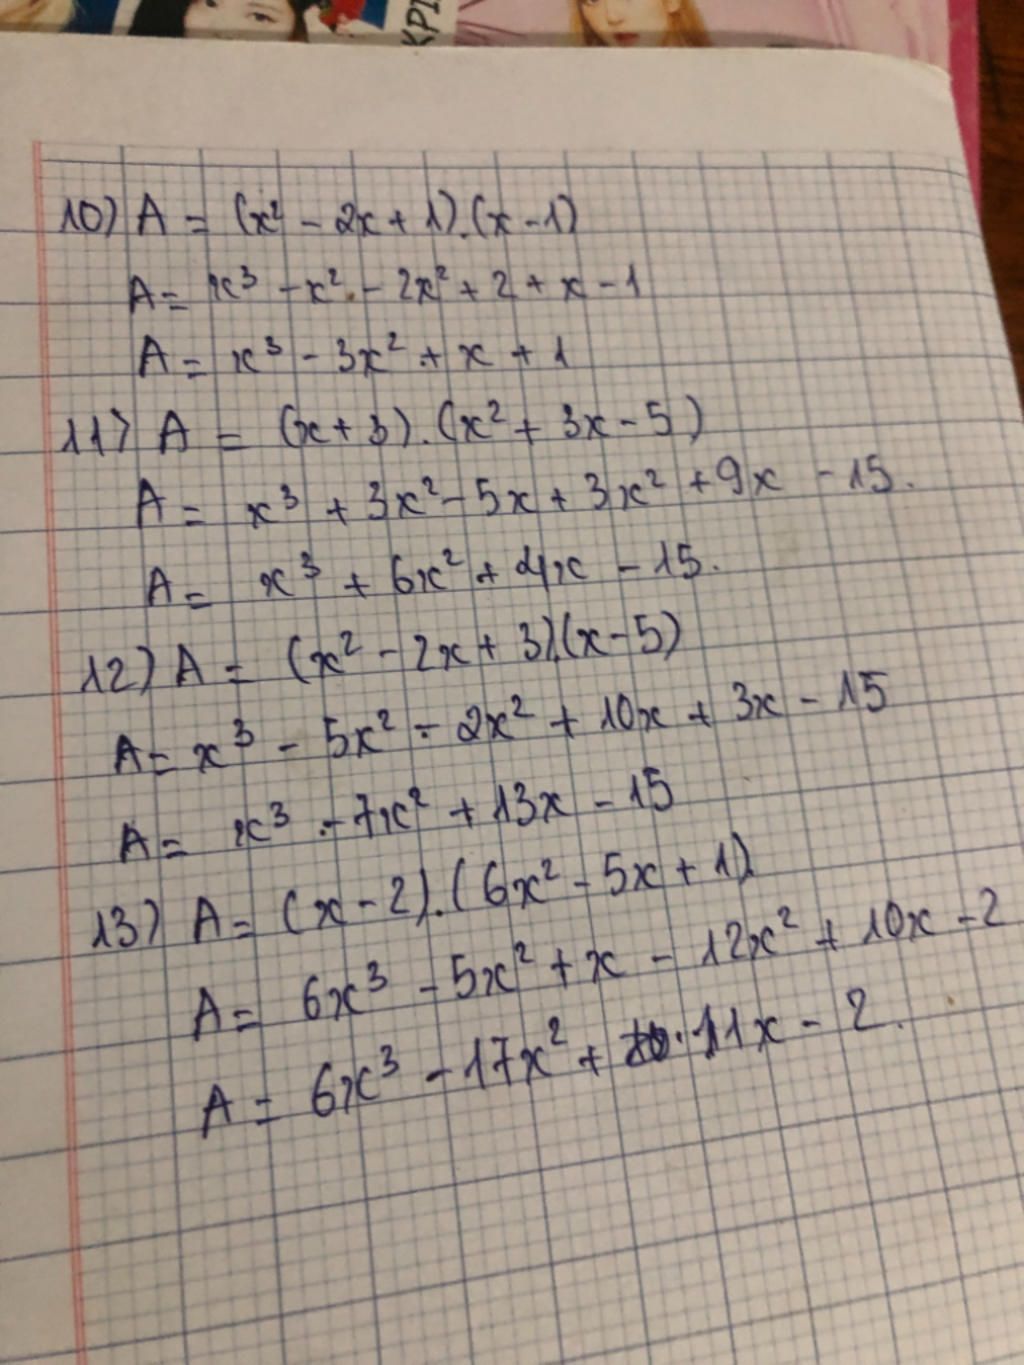 KPI
10) A = (x² - 2x + 1).(x - 1)
A = x³ - x² - 2x² + 2 + x - 1
A = x³ - 3x² + x + 1
11) A = (x + 3).(x² + 3x - 5)
A = x³ + 3x² - 5x + 3x² + 9x - 15.
A = x³ + 6x² + 4x - 15.
12) A = (x² - 2x + 3).(x - 5)
A = x³ - 5x² - 2x² + 10x + 3x - 15
A = x³ - 7x² + 13x - 15
13) A = (x - 2).(6x² - 5x + 1)
A = 6x³ - 5x² + x - 12x² + 10x - 2
A = 6x³ - 17x² + 11x - 2.